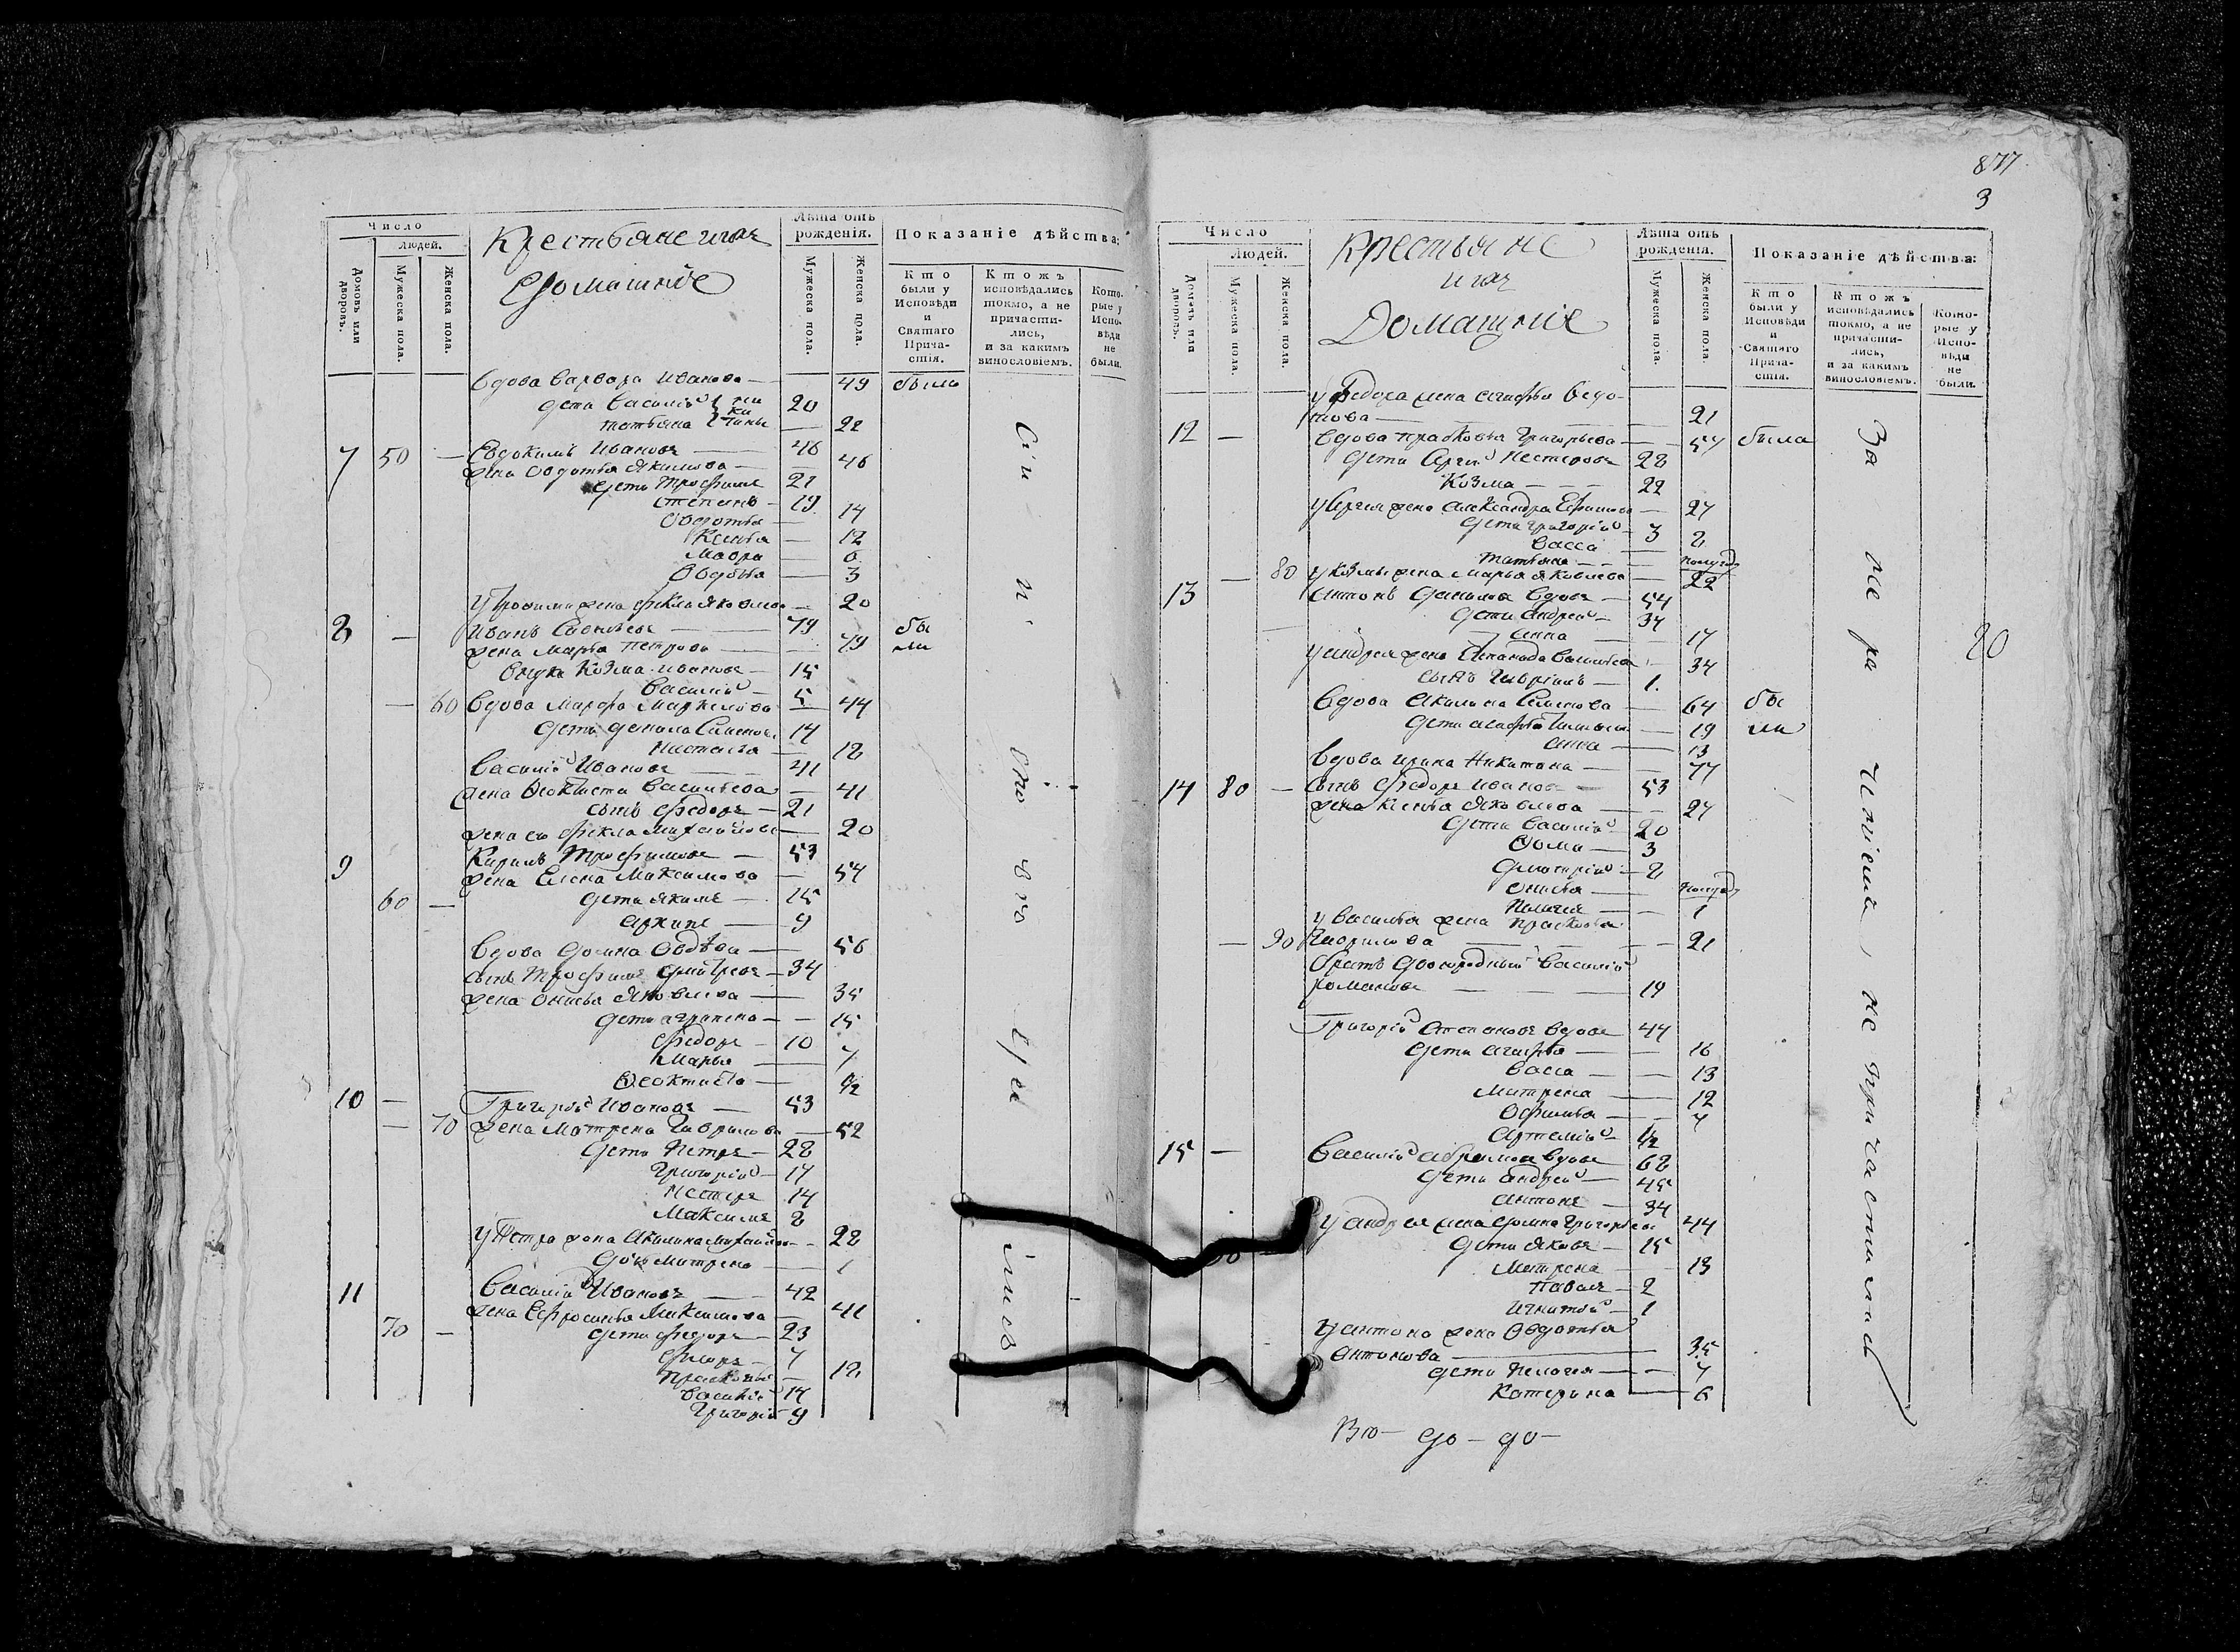 Число
Людей.
Домовъ или дворовъ.
Мужеска пола.
Женска пола.
Крестьяне ихъ
Домашніе
Лѣта отъ рожденія.
Мужеска пола.
Женска пола.
Показаніе дѣйства:
Кто были у Исповѣди и Святаго Прича-стія.
Ктожъ исповѣдались токмо, а не причасти-лись, и за какимъ винословіемъ.
Кото-рые у Испо-вѣди не были.
вдова варвара Иванова — 49 были
дети василій 20
татьяна 22
7 50 — Евдокимъ Ивановъ — 46
жена овдотья Якимова — 46
дети трофимъ 21
степанъ — 19
овдотья — 14
Ксенья — 12
Мавра — 6
Овдотья — 3
у трофима жена фекла яковлева — 20
8 — Иванъ Савельевъ — 79 бы
жена Марья петрова — 79 ли
внуки Козма ивановъ — 15
василій — 5
— 60 вдова марфа маркелова — 44
дети данила Семеновъ 14
настасья — 12
василій Ивановъ — 41
жена Феоктиста васильева — 41
сынъ федоръ — 21
жена ево фекла михайлова — 20
9 Кирилъ трофимовъ — 53
жена Елена Максимова — 54
60 — дети якимъ — 15
архипъ — 9
вдова домна — 56
сынъ трофимъ дмитревъ — 34
жена онисья яковлева — 35
дети аграпена — 15
федоръ — 10
Марья — 7
Феоктиста — 1/2
10 — Григорій Ивановъ — 53
— 70 жена матрена гаврилова — 52
дети петръ — 28
григорій — 17
нестеръ 14
Максимъ 2
у петра жена Акилина михайлова — 22
дочь матрена — 1
11 василій Ивановъ — 42
жена Ефросинья Максимова — 41
70 — дети федоръ — 23
7
прасковья — 12
василій 14
григорій 9
Сіи
и
его
лись
877
3
Число
Людей.
Домовъ или дворовъ.
Мужеска пола.
Женска пола.
Крестьяне
ихъ
Домашніе
Лѣта отъ рожденія.
Мужеска пола.
Женска пола.
Показаніе дѣйства:
Кто были у Исповѣди и Святаго Прича-стія.
Ктожъ исповѣдались токмо, а не причасти-лись, и за какимъ винословіемъ.
Кото-рые у Испо-вѣди не были.
у федора жена агафья федо-
това — 21
12 — вдова прасковья григорьева — 57 была
дети Сергій Нестеровъ 28
Козма — 22
у сергея жена александра Ефимова — 27
дети григорій — 3
васса — 2
татьяна — полугод
— 80 у козмы жена марья яковлева — 22
13 антонъ даниловъ вдовъ — 54
дети андрей — 34
анна — 17
у андрея жена васильева — 34
сынъ гаврилъ — 1
20
вдова Акилина Семенова — 64 бы
дети агафья — 19 ли
анна — 13
вдова ирина Никитина — 77
14 80 — сынъ федоръ ивановъ — 53
жена ксенья яковлева — 27
дети василій 20
Фома — 3
дмитрій — 2
онисья — полугод
пелагея — 1
у василья жена прасковья
— 90 гаврилова — 21
братъ двоюродный василій
романовъ — 19
Григорій Степановъ вдовъ 44
дети агафья — 16
васса — 13
матрена — 12
офимья — 7
артемій — 1/2
15 — василій абрамовъ вдовъ 68
дети андрей — 45
антонъ — 34
у андрея жена домна григорьева 44
дети яковъ — 15
матрена — 13
павелъ — 2
игнатій — 1
у антона жена Овдотья
антонова — 35
дети пелагея — 7
Катерина — 6
За не ра ченіемъ не причастились